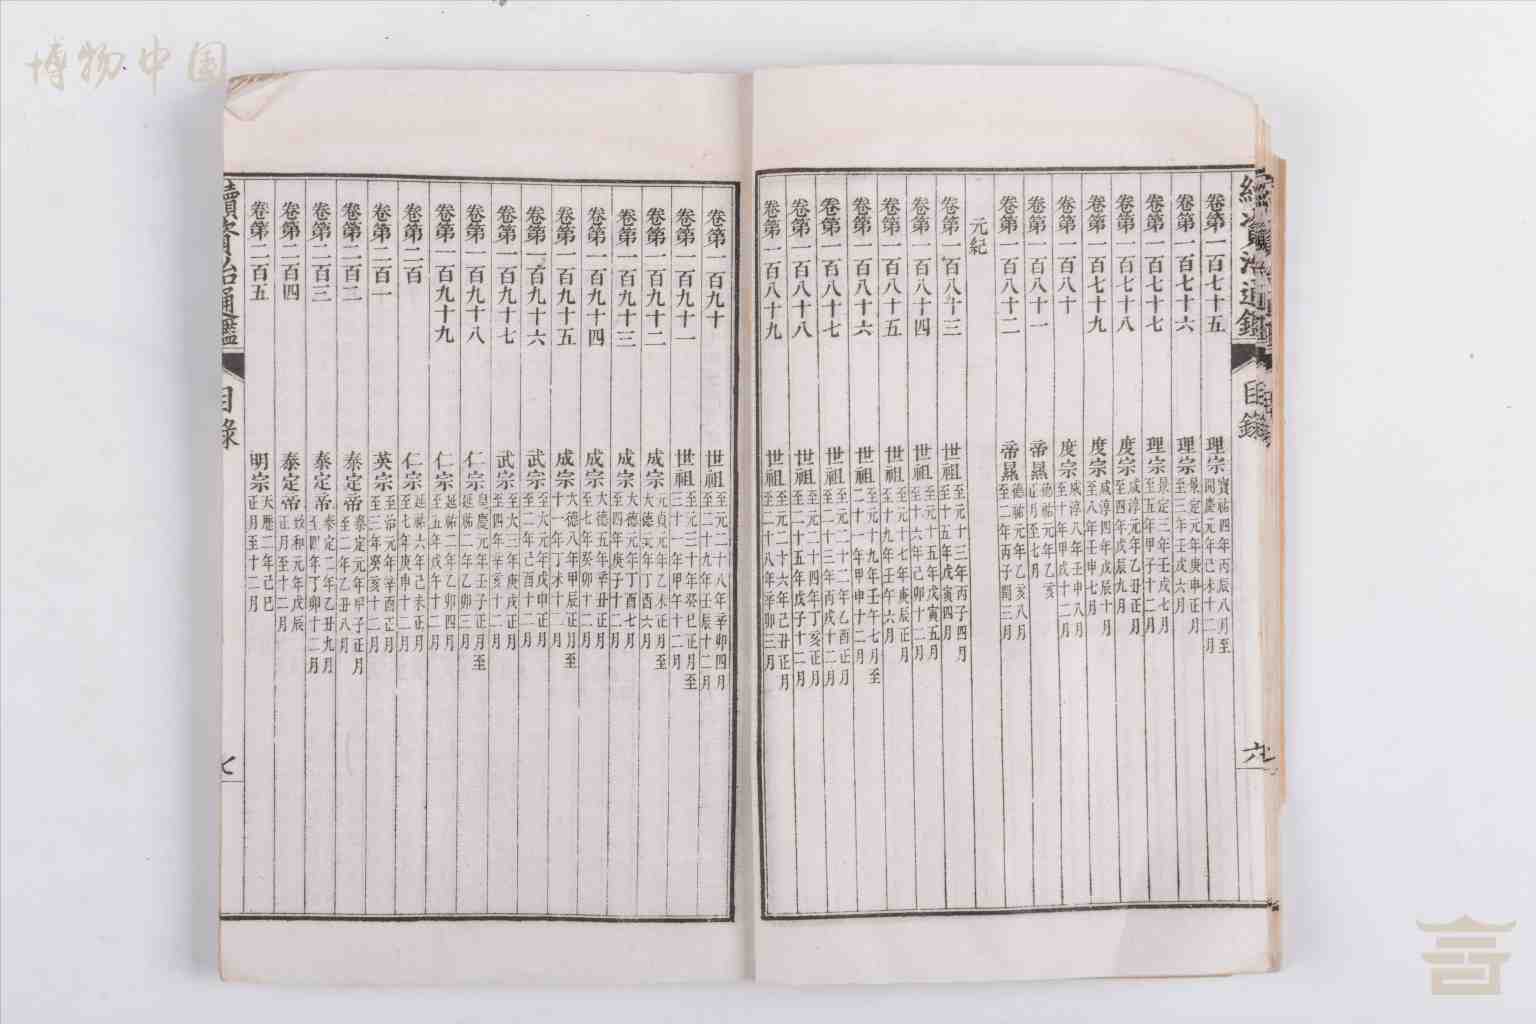 博物中国
續資治通鑑 目錄 六
卷第一百七十五 理宗寶祐四年丙辰八月至開慶元年己未十二月
卷第一百七十六 理宗景定元年庚申正月至三年壬戌六月
卷第一百七十七 理宗景定三年壬戌七月至五年甲子十二月
卷第一百七十八 度宗咸淳元年乙丑正月至四年戊辰九月
卷第一百七十九 度宗咸淳四年戊辰十月至八年壬申七月
卷第一百八十 度宗咸淳八年壬申八月至十年甲戌十二月
卷第一百八十一 帝㬎德祐元年乙亥正月至七月
卷第一百八十二 帝㬎德祐元年乙亥八月至二年丙子閏三月
元紀
卷第一百八十三 世祖至元十三年丙子四月至十五年戊寅四月
卷第一百八十四 世祖至元十五年戊寅五月至十六年己卯十二月
卷第一百八十五 世祖至元十七年庚辰正月至十九年壬午六月
卷第一百八十六 世祖至元十九年壬午七月至二十一年甲申十二月
卷第一百八十七 世祖至元二十二年乙酉正月至二十三年丙戌十二月
卷第一百八十八 世祖至元二十四年丁亥正月至二十五年戊子十二月
卷第一百八十九 世祖至元二十六年己丑正月至二十八年辛卯三月
卷第一百九十 世祖至元二十八年辛卯四月至二十九年壬辰十二月
卷第一百九十一 世祖至元三十年癸巳正月至三十一年甲午十二月
卷第一百九十二 成宗元貞元年乙未正月至大德元年丁酉六月
卷第一百九十三 成宗大德元年丁酉七月至四年庚子十二月
卷第一百九十四 成宗大德五年辛丑正月至七年癸卯十二月
卷第一百九十五 成宗大德八年甲辰正月至十一年丁未十二月
卷第一百九十六 武宗至大元年戊申正月至二年己酉十二月
卷第一百九十七 武宗至大三年庚戌正月至四年辛亥十二月
卷第一百九十八 仁宗皇慶元年壬子正月至延祐二年乙卯三月
卷第一百九十九 仁宗延祐二年乙卯四月至五年戊午十二月
卷第二百 仁宗延祐六年己未正月至七年庚申十二月
卷第二百一 英宗至治元年辛酉正月至三年癸亥十二月
卷第二百二 泰定帝泰定元年甲子正月至二年乙丑八月
卷第二百三 泰定帝泰定二年乙丑九月至四年丁卯十二月
卷第二百四 泰定帝致和元年戊辰正月至十二月
卷第二百五 明宗天曆二年己巳正月至十二月
續資治通鑑 目錄 七